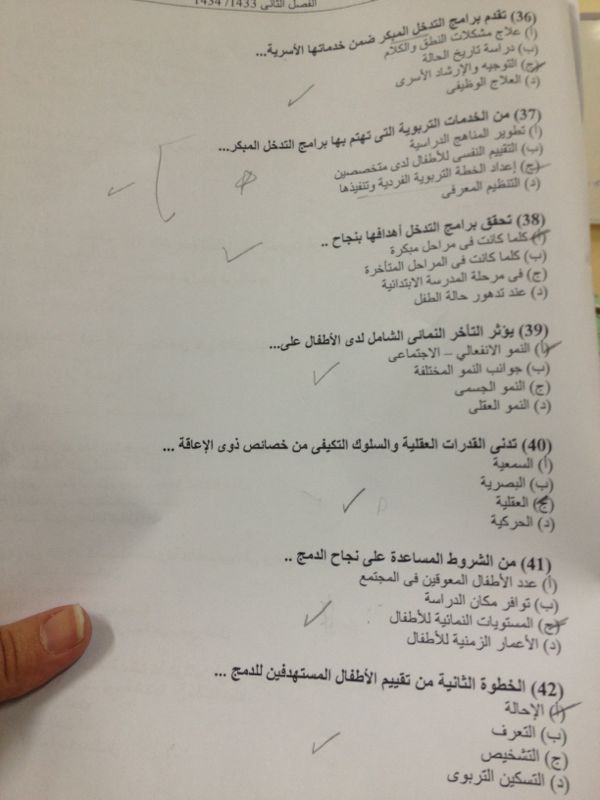 الفصل الثانى 1433/ 1434
(36) تقدم برامج التدخل المبكر ضمن خدماتها الأسرية...
(أ) علاج مشكلات النطق والكلام
(ب) دراسة تاريخ الحالة
(ج) التوجيه والإرشاد الأسرى
(د) العلاج الوظيفى
(37) من الخدمات التربوية التى تهتم بها برامج التدخل المبكر...
(أ) تطوير المناهج الدراسية
(ب) التقييم النفسى للأطفال لدى متخصصين
(ج) إعداد الخطة التربوية الفردية وتنفيذها
(د) التنظيم المعرفى
(38) تحقق برامج التدخل أهدافها بنجاح ..
(أ) كلما كانت فى مراحل مبكرة
(ب) كلما كانت فى المراحل المتأخرة
(ج) فى مرحلة المدرسة الابتدائية
(د) عند تدهور حالة الطفل
(39) يؤثر التأخر النمائى الشامل لدى الأطفال على...
(أ) النمو الانفعالي – الاجتماعى
(ب) جوانب النمو المختلفة
(ج) النمو الجسمى
(د) النمو العقلى
(40) تدنى القدرات العقلية والسلوك التكيفى من خصائص ذوى الإعاقة ...
(أ) السمعية
(ب) البصرية
(ج) العقلية
(د) الحركية
(41) من الشروط المساعدة على نجاح الدمج ..
(أ) عدد الأطفال المعوقين فى المجتمع
(ب) توافر مكان الدراسة
(ج) المستويات النمائية للأطفال
(د) الأعمار الزمنية للأطفال
(42) الخطوة الثانية من تقييم الأطفال المستهدفين للدمج ...
(أ) الإحالة
(ب) التعرف
(ج) التشخيص
(د) التسكين التربوى